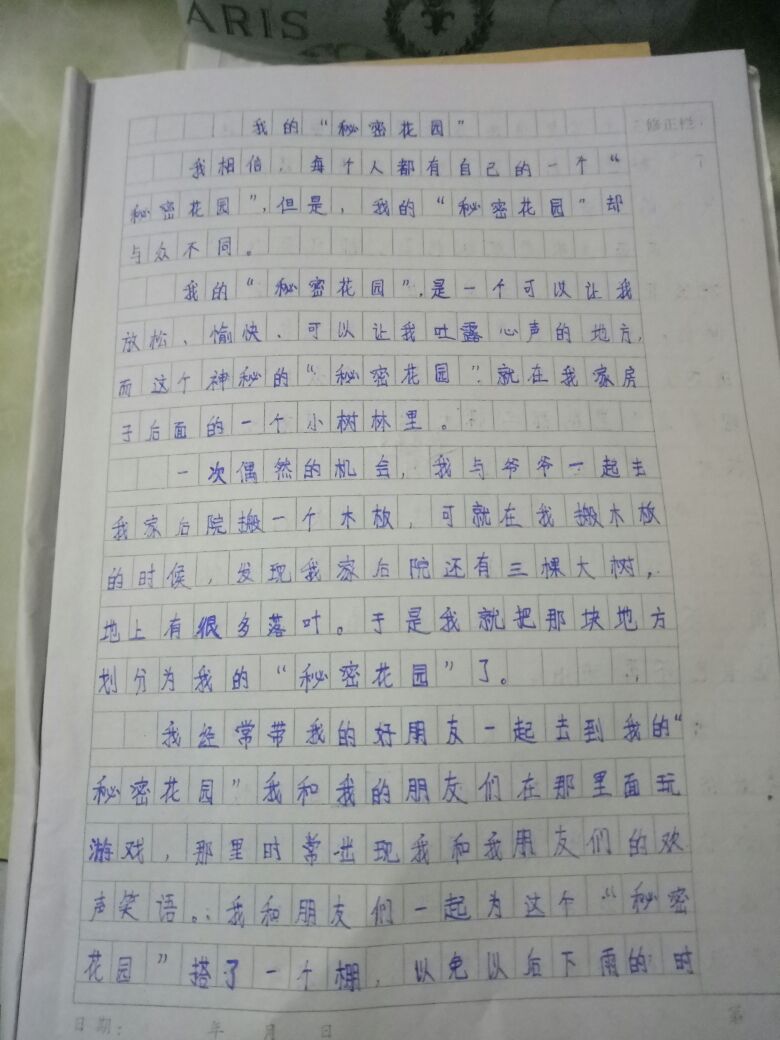 ARIS
我的“秘密花园”
修正栏:
我相信，每个人都有自己的一个“
秘密花园”，但是，我的“秘密花园”却
与众不同。
我的“秘密花园”，是一个可以让我
放松、愉快、可以让我吐露心声的地方，
而这个神秘的“秘密花园”就在我家房
子后面的一个小树林里。
一次偶然的机会，我与爷爷一起去
我家后院搬一个木板，可就在我搬木板
的时候，发现我家后院还有三棵大树，
地上有很多落叶。于是我就把那块地方
划分为我的“秘密花园”了。
我经常带我的好朋友一起去到我的“
秘密花园”我和我的朋友们在那里面玩
游戏，那里时常出现我和我朋友们的欢
声笑语。我和朋友们一起为这个“秘密
花园”搭了一个棚，以免以后下雨的时
日期: 年 月 日 第